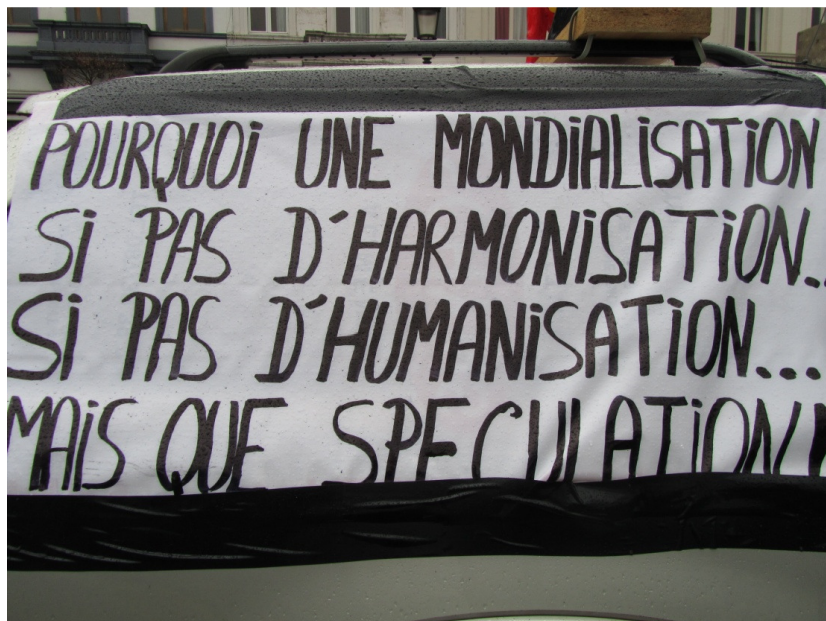 POURQUOi UNE MONDiALiSATiON
Si PAS D'HARMONiSATiON..
Si PAS D'HUMANiSATiON...
MAiS QUE SPECULATiON!